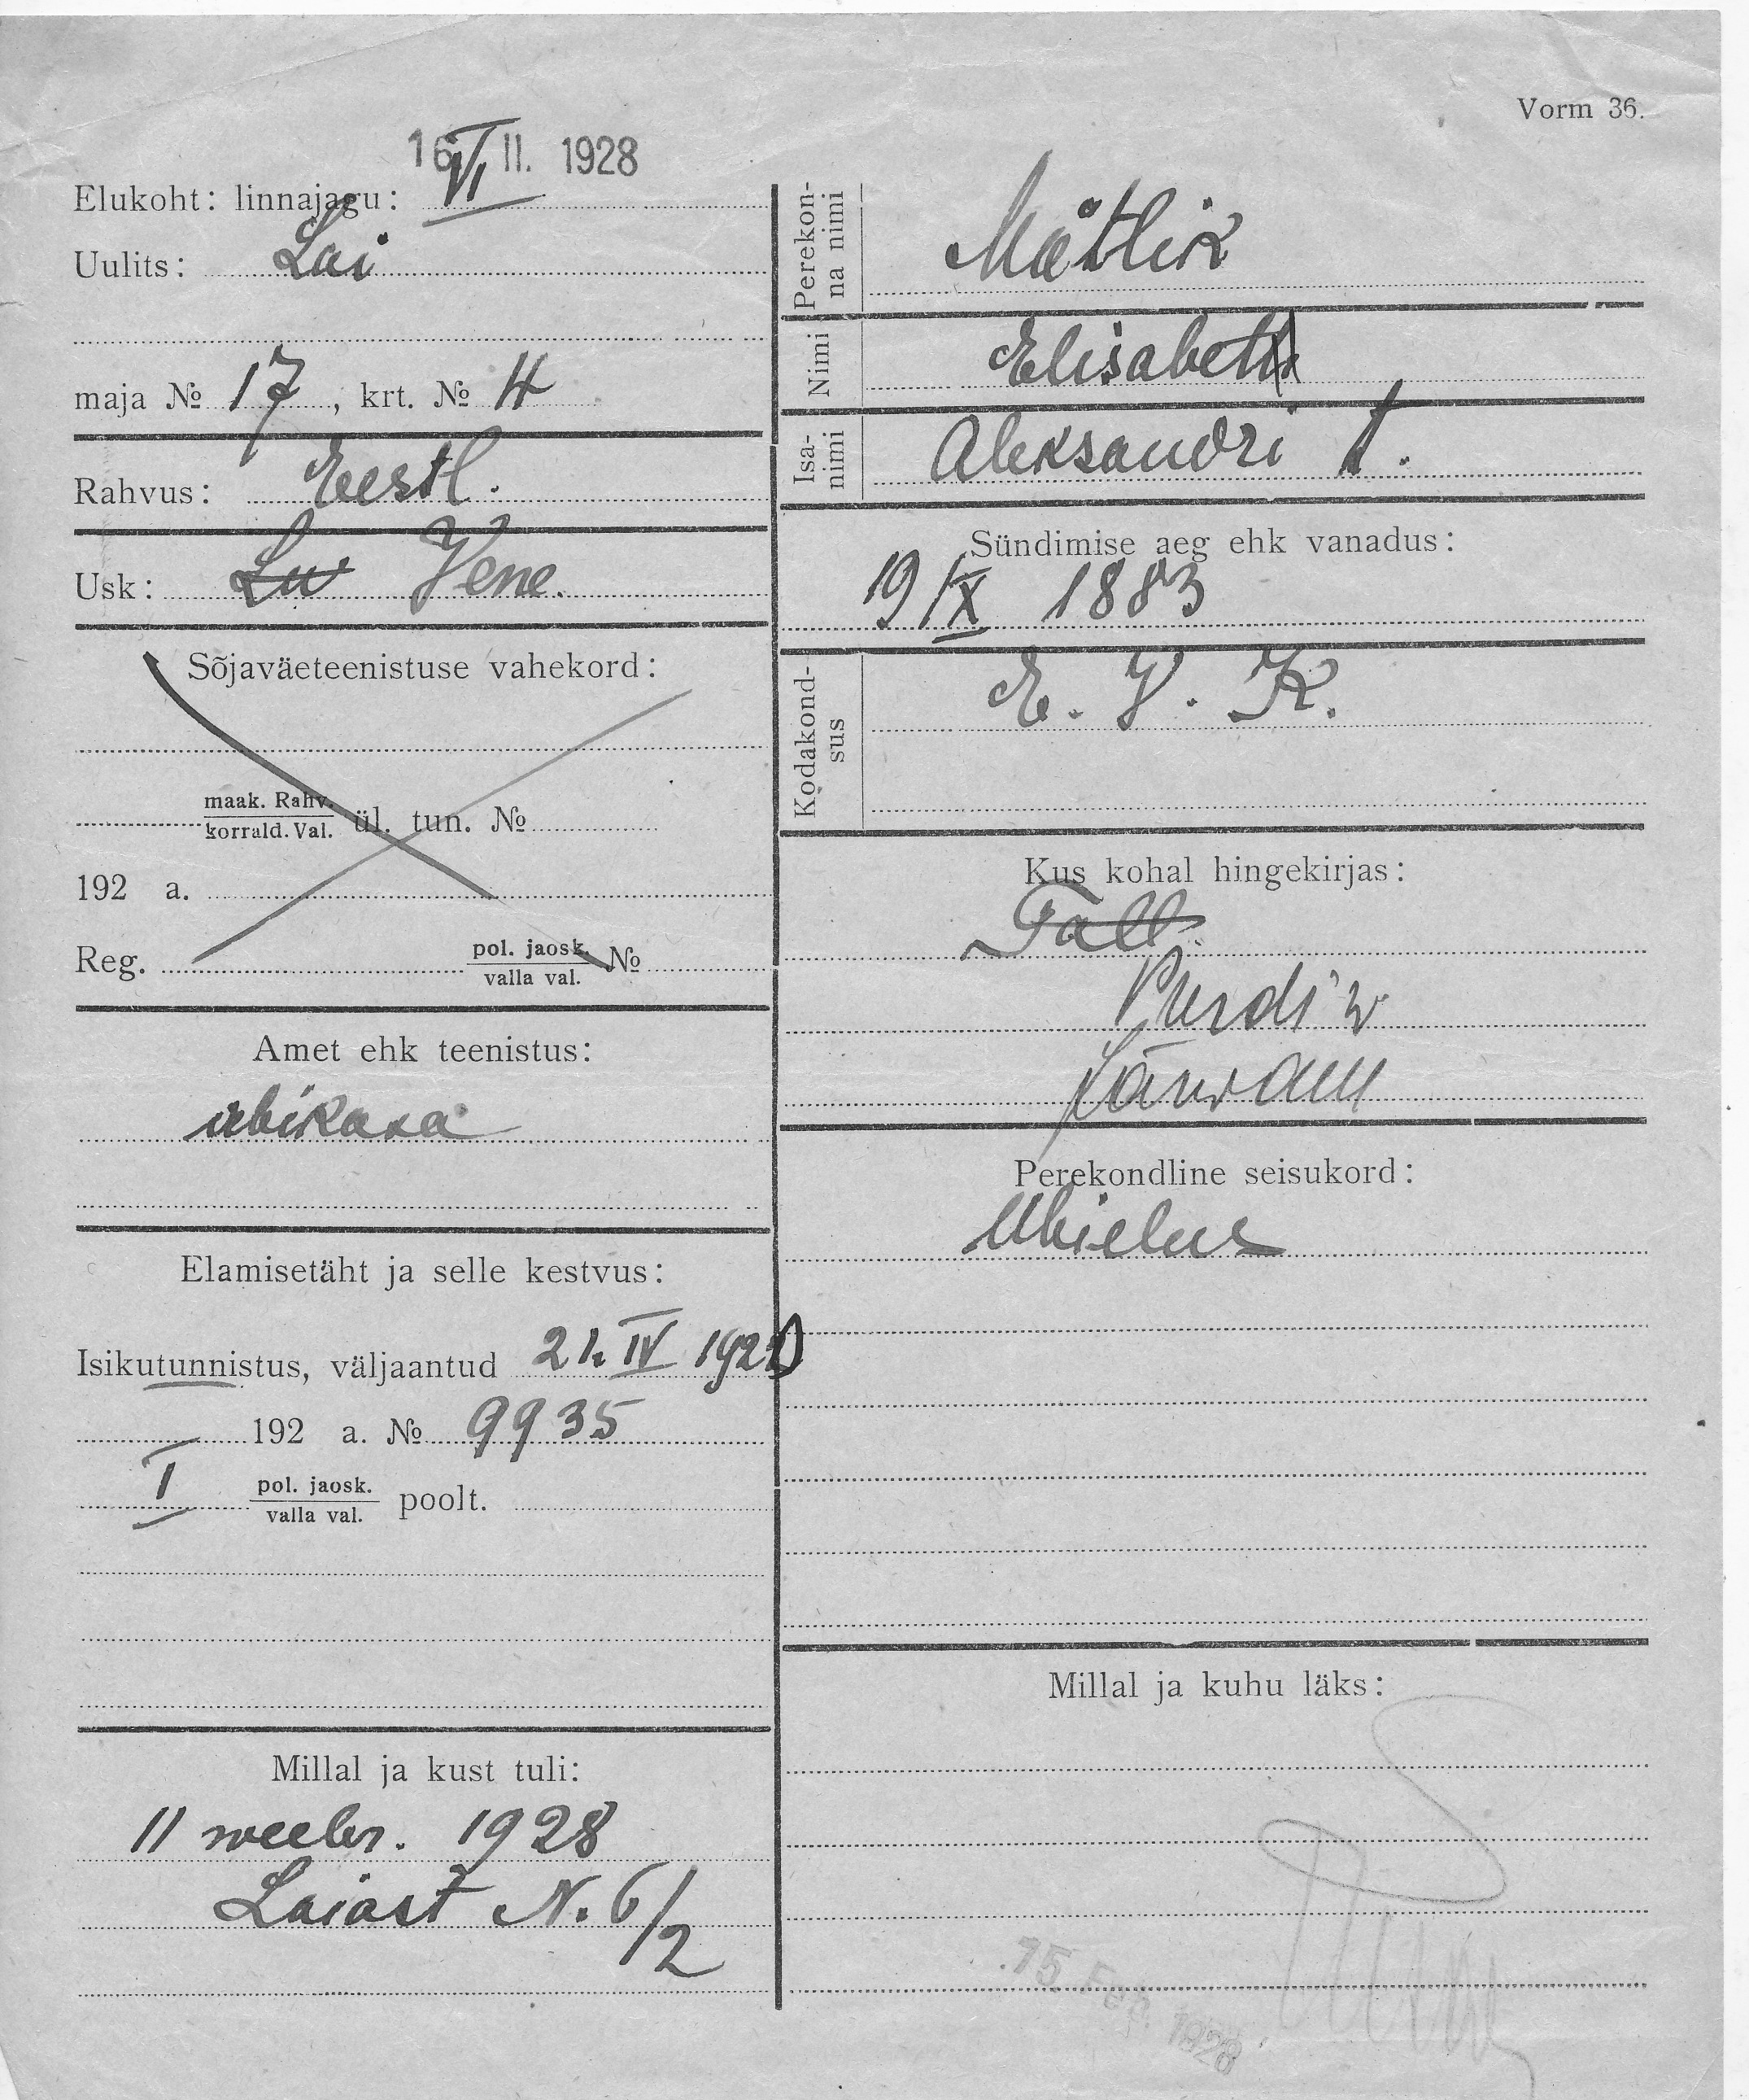 Vorm 36.
16. II. 1928
Elukoht: linnajagu: VI
Uulits: Lai
maja № 17, krt. № 4
Rahvus: Eestl.
Usk: Lu Vene.
Sõjaväeteenistuse vahekord:
maak. Rahv.
korrald. Val. ül. tun. №
192 a.
Reg. pol. jaosk. №
valla val.
Amet ehk teenistus:
abikasa
Elamisetäht ja selle kestvus:
Isikutunnistus, väljaantud 21. IV
192 a. № 9935
I pol. jaosk. poolt.
valla val.
Millal ja kust tuli:
11 weebr. 1928
Laiast N. 6/2
Perekonna nimi
Mätlik
Nimi Elisabeth
Isanimi Aleksandri t.
Sündimise aeg ehk vanadus:
19 IX 1883
Kodakondsus
E. V. K.
Kus kohal hingekirjas:
Tall.
Purdi w
Järwam
Perekondline seisukord:
Abielus
Millal ja kuhu läks:
15 Feb. 1928